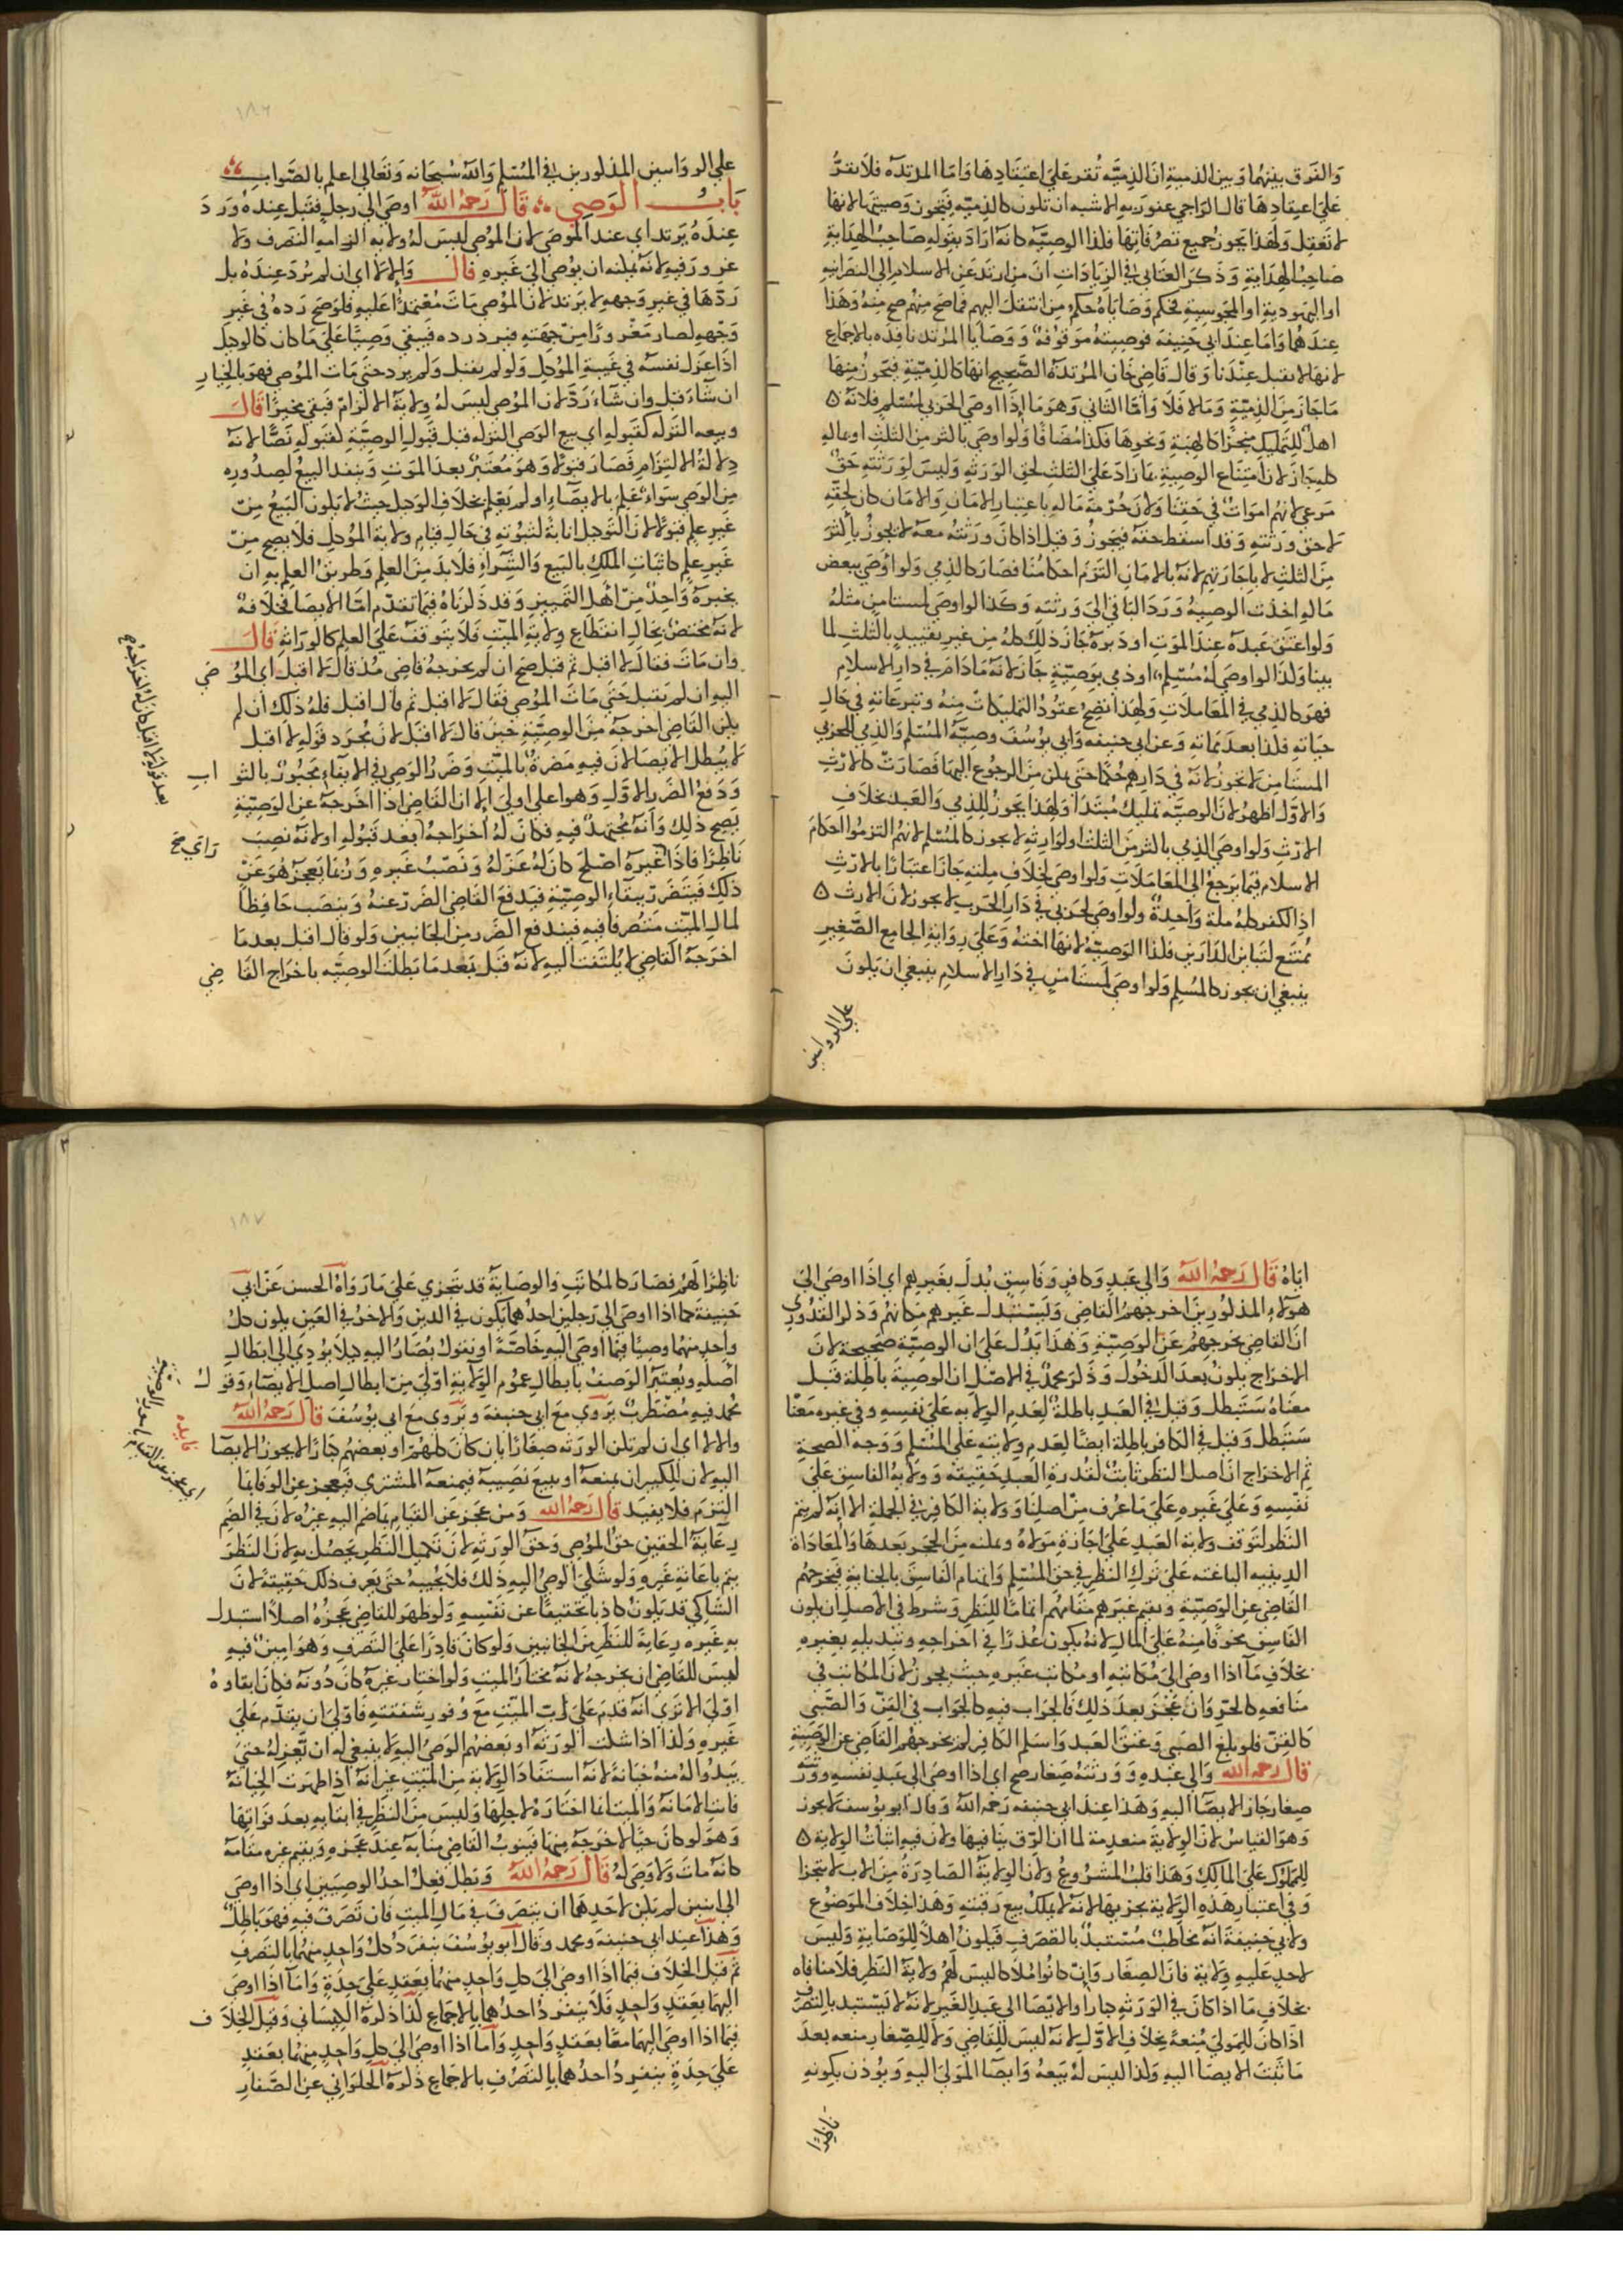 والفرق بينهما وبين الذمية ان الذمية تقر على اعتقادها واما المرتدة فلا تقر
على اعتقادها قال الراجي عفو ربه الاشبه ان تكون كالذمية فتجوز وصيتها لانها
لا تقتل ولهذا يجوز جميع تصرفاتها فكذا الوصية كانه اراد بقوله صاحب الهداية
صاحب الهداية وذكر العتابي في الزيادات ان من ارتد عن الاسلام الى النصرانية
او اليهودية او المجوسية فحكم وصاياه حكم من انتقل اليهم فما صح منهم صح منه وهذا
عندهما واما عند ابي حنيفة فوصيته موقوفة ووصايا المرتدة نافذة بالاجماع
لانها لا تقتل عندنا وقال قاضي خان المرتدة الصحيح انها كالذمية فتجوز منها
ما جاز من الذمية وما لا فلا واما الثاني وهو ما اذا اوصى الحربي لمسلم فلانه ه
اهل للتمليك منجزا كالهبة ونحوها فكذا مضافا ولو اوصى باكثر من الثلث او بماله
كله جاز لان امتناع الوصية بما زاد على الثلث لحق الورثة وليس لورثته حق
مرعي لانهم اموات في حقنا ولان حرمة ماله باعتبار الامان والامان كان لحقه
لا حق ورثته وقد اسقط حقه فيجوز وقيل اذا كان ورثته معه لا يجوز باكثر
من الثلث الا باجازتهم لانه بالامان التزم احكامنا فصار كالذمي ولو اوصى ببعض
ماله اخذت الوصية ورد الباقي الى ورثته وكذا لو اوصى لمستامن مثله
ولو اعتق عبده عند الموت او دبره جاز ذلك كله من غير تقييد بالثلث لما
بينا وكذا لو اوصى له مسلم او ذمي بوصية جاز لانه ما دام في دار الاسلام
فهو كالذمي في المعاملات ولهذا تصح عقود التمليكات منه وتبرعاته في حال
حياته فكذا بعد مماته وعن ابي حنيفة وابي يوسف وصية المسلم والذمي للحربي
المستامن لا تجوز لانه في دارهم حكما حتى يمكن من الرجوع اليها فصارت كالارث
والاول اظهر لان الوصية تمليك مبتدا ولهذا يجوز للذمي والعبد بخلاف
الارث ولو اوصى الذمي باكثر من الثلث او لوارثه لا يجوز كالمسلم لانهم التزموا احكام
الاسلام فيما يرجع الى المعاملات ولو اوصى لخلاف ملته جاز اعتبارا بالارث
اذ الكفر كله ملة واحدة ولو اوصى لحربي في دار الحرب لا يجوز لان الارث ه
ممتنع لتباين الدارين فكذا الوصية لانها اخته وعلى رواية الجامع الصغير
ينبغي ان يجوز كالمسلم ولو اوصى لمستامن في دار الاسلام ينبغي ان يكون
على الروايتين
١٨٦
على الروايتين المذكورين في المسلم والله سبحانه وتعالى اعلم بالصواب
باب الوصي قال رحمه الله اوصى الى رجل فقبل عنده ورد
عنده يرتد اي عند الموصي لان الموصي ليس له ولاية الزامه التصرف ولا
غرور فيه لانه يمكنه ان يوصي الى غيره قال والا لا اي ان لم يرد عنده بل
ردها في غير وجهه لا يرتد لان الموصي مات معتمدا عليه فلو صح رده في غير
وجهه لصار مغرورا من جهته فيرد رده فيبقى وصيا على ما كان كالوكيل
اذا عزل نفسه في غيبة الموكل ولو لم يقبل ولم يرد حتى مات الموصي فهو بالخيار
ان شاء قبل وان شاء رد لان الموصي ليس له ولاية الالزام فبقي مخيرا قال
وبيعه التركة كقبوله اي بيع الوصي التركة قبل قبول الوصية كقبوله نصا لانه
دلالة الالتزام فصار قبولا وهو معتبر بعد الموت وينفذ البيع لصدوره
من الوصي سواء علم بالايصاء او لم يعلم بخلاف الوكيل حيث لا يكون البيع من
غير علم قبولا لان التوكيل انابة لثبوته في حال قيام ولاية الموكل فلا يصح من
غير علم كاثبات الملك بالبيع والشراء فلا بد من العلم وطريق العلم به ان
يخبره واحد من اهل التمييز وقد ذكرناه فيما تقدم اما الايصا فخلافة
لانه مختص بحال انقطاع ولاية الميت فلا يتوقف على العلم كالوراثة قال
وان مات فقال لا اقبل ثم قبل صح ان لم يخرجه قاضي مذ قال لا اقبل اي الموصي
اليه ان لم يقبل حتى مات الموصي فقال لا اقبل ثم قال اقبل فله ذلك ان لم
يكن القاضي اخرجه من الوصية حين قال لا اقبل لان مجرد قوله لا اقبل
لا يبطل الايصا لان فيه مضرة بالميت وضرر الوصي في الابقاء مجبور بالثواب
ودفع الضرر الاول وهو اعلى اولى الا ان القاضي اذا اخرجه عن الوصية
يصح ذلك وانه مجتهد فيه فكان له اخراجه بعد قبوله او لانه نصب
ناظرا فاذا غيره اصلح كان له عزله ونصب غيره وربما يعجز هو عن
راى صح
ذلك فيتضرر ببقاء الوصية فيدفع القاضي الضرر عنه وينصب حافظا
لمال الميت متصرفا فيه فيندفع الضرر من الجانبين ولو قال اقبل بعدما
اخرجه القاضي لا يلتفت اليه لانه قبل بعدما بطلت الوصية باخراج القاضي
اياه قال رحمه الله والى عبد وكافر وفاسق بدل بغيرهم اي اذا اوصى الى
هولاء المذكورين اخرجهم القاضي ويستبدل غيرهم مكانهم وذكر القدوري
ان القاضي يخرجهم عن الوصية وهذا يدل على ان الوصية صحيحة لان
الاخراج يكون بعد الدخول وذكر محمد في الاصل ان الوصية باطلة قيل
معناه ستبطل وقيل في العبد باطلة لعدم الولاية على نفسه وفي غيره معنا
ستبطل وقيل في الكافر باطلة ايضا لعدم ولايته على المسلم ووجه الصحة
ثم الاخراج ان اصل النظر ثابت لقدرة العبد حقيقة وولاية الفاسق على
نفسه وعلى غيره على ما عرف من اصلنا وولاية الكافر في الجملة الا انه لم يتم
النظر لتوقف ولاية العبد على اجازة مولاه وتمكنه من الحجر بعدها والمعاداة
الدينية الباعثة على ترك النظر في حق المسلم واتهام الفاسق بالخيانة فيخرجهم
القاضي عن الوصية ويقيم غيرهم مقامهم اتماما للنظر وشرط في الاصل ان يكون
الفاسق مخوفا منه على المال لانه يكون عذرا في اخراجه وتبديله بغيره
بخلاف ما اذا اوصى الى مكاتبه او مكاتب غيره حيث يجوز لان المكاتب في
منافعه كالحر وان عجز بعد ذلك فالجواب فيه كالجواب في القن والصبي
كالقن فلو بلغ الصبي وعتق العبد واسلم الكافر لم يخرجهم القاضي عن الوصية
قال رحمه الله والى عبده وورثته صغار صح اي اذا اوصى الى عبد نفسه وورثته
صغار جاز الايصا اليه وهذا عند ابي حنيفة رحمه الله وقال ابو يوسف لا يجوز
وهو القياس لان الولاية منعدمة لما ان الرق ينافيها ولان فيه اثبات الولاية ه
للمملوك على المالك وهذا قلب المشروع ولان الولاية الصادرة من الاب لا تتجزا
وفي اعتبار هذه الولاية تجزيها لانه لا يملك بيع رقبته وهذا خلاف الموضوع
ولابي حنيفة انه مخاطب مستبد بالتصرف فيكون اهلا للوصاية وليس
لاحد عليه ولاية فان الصغار وان كانوا ملاكا ليس لهم ولاية النظر فلا منافاه
بخلاف ما اذا كان في الورثة كبارا والايصا الى عبد الغير لانه لا يستبد بالتصرف
اذا كان للمولى منعه بخلاف الاول لانه ليس للقاضي ولا للصغار منعه بعد
ما ثبت الايصا اليه وكذا ليس له بيعه وايصا المولى اليه ويوذن بكونه
ناظرا
١٨٧
ناظرا لهم فصار كالمكاتب والوصاية قد تتجزي على ما رواه الحسن عن ابي
حنيفة كما اذا اوصى الى رجلين احدهما يكون في الدين والاخر في العين يكون كل
واحد منهما وصيا فيما اوصى اليه خاصة او نقول يصار اليه كيلا يؤدي الى ابطال
اصله ويعتبر الوصف بابطال عموم الولاية اولى من ابطال اصل الايصاء وقول
محمد فيه مضطرب يروى مع ابي حنيفة ويروى مع ابي يوسف قال رحمه الله
والا لا اي ان لم تكن الورثة صغارا بان كان كلهم او بعضهم كبارا لا يجوز الايصا
اليه لان للكبير ان يمنعه او يبيع نصيبه فيمنعه المشتري فيعجز عن الوفا بما
التزم فلا يفيد قال رحمه الله ومن عجز عن القيام بها ضم اليه غيره لان في الضم
رعاية الحقين حق الموصي وحق الورثة لان تكميل النظر يحصل به لان النظر
يتم باعانة غيره ولو شكى الوصي اليه ذلك فلا يجيبه حتى يعرف ذلك حقيقة لان
الشاكي قد يكون كاذبا تخفيفا عن نفسه ولو ظهر للقاضي عجزه اصلا استبدل
به غيره رعاية للنظر من الجانبين ولو كان قادرا على التصرف وهو امين فيه
ليس للقاضي ان يخرجه لانه مختار الميت ولو اختار غيره كان دونه فكان ابقاوه
اولى الا ترى انه قدم على اب الميت مع وفور شفقته فاولى ان يقدم على
غيره وكذا اذا شك الورثة او بعضهم الوصي اليه لا ينبغي له ان يعزله حتى
يبدو له منه خيانة لانه استفاد الولاية من الميت غير انه اذا ظهرت الخيانة
فاتت الامانة والميت انما اختاره لاجلها وليس من النظر في ابقايه بعد فواتها
وهو لو كان حيا لاخرجه منها فينوب القاضي منابه عند عجزه ويقيم غيره مقامه
كانه مات ولا وصي له قال رحمه الله وبطل فعل احد الوصيين اي اذا اوصى
الى اثنين لم يكن لاحدهما ان يتصرف في مال الميت فان تصرف فيه فهو باطل
وهذا عند ابي حنيفة ومحمد وقال ابو يوسف ينفرد كل واحد منهما بالتصرف
ثم قيل الخلاف فيما اذا اوصى الى كل واحد منهما بعقد على حدة واما اذا اوصى
اليهما بعقد واحد فلا ينفرد احدهما بالاجماع كذا ذكره الكيساني وقيل الخلاف
فيما اذا اوصى اليهما معا بعقد واحد واما اذا اوصى الى كل واحد منهما بعقد
على حدة ينفرد احدهما بالتصرف بالاجماع ذكره الحلواني عن الصفار